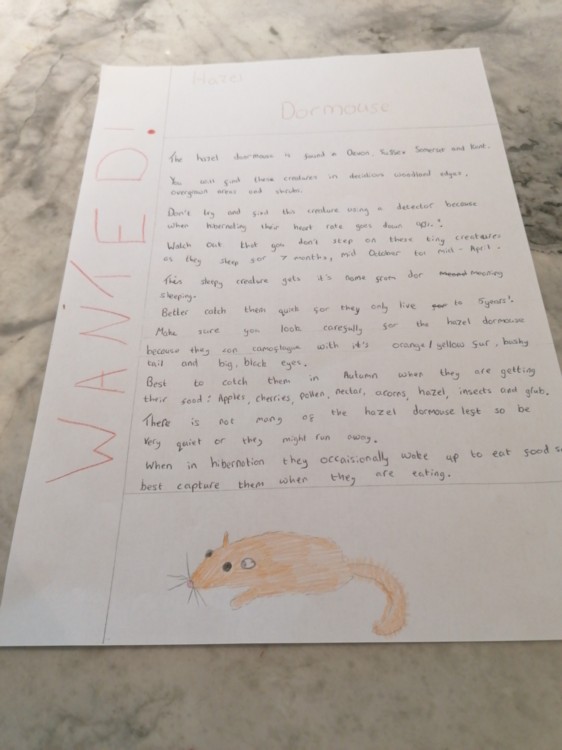 WANTED!
Hazel
Dormouse
The hazel doormouse is found in Devon, Sussex Somerset and Kent.
You will find these creatures in decidious woodland edges,
overgrown areas and shrubs.
Don't try and find this creature using a detector because
when hibernating their heart rate goes down 90%!
Watch out that you don't step on these tiny creatures
as they sleep for 7 months, mid October for mid - April.
This sleepy creature gets it's name from dor meaning
sleeping.
Better catch them quik for they only live to 5years!
Make sure you look carefully for the hazel dormouse
because they can camoflague with it's orange/yellow fur, bushy
tail and big, black eyes.
Best to catch them in Autumn when they are getting
their food: Apples, cherries, pollen, nectar, acorns, hazel, insects and grub.
There is not many of the hazel dormouse left so be
very quiet or they might run away.
When in hibernation they occaisionally wake up to eat food so
best capture them when they are eating.